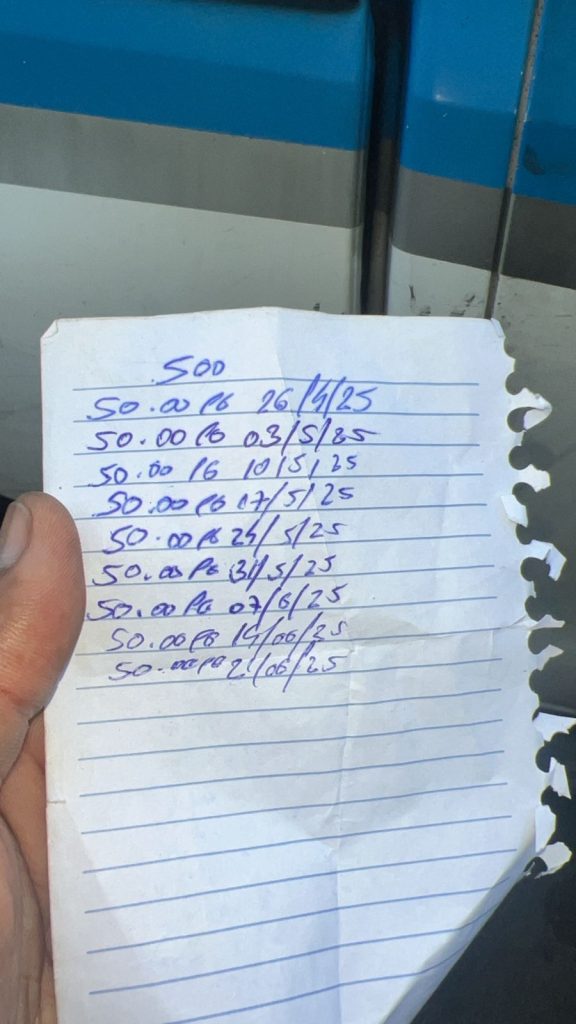 500
50.00 PG 26/4/25
50.00 PG 03/5/25
50.00 PG 10/5/25
50.00 PG 17/5/25
50.00 PG 24/5/25
50.00 PG 31/5/25
50.00 PG 07/6/25
50.00 PG 14/06/25
50.00 PG 21/06/25